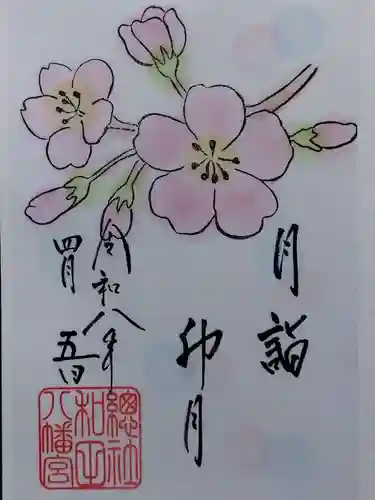 月詣
卯月
令和八年
四月五日
總社
和田
八幡宮